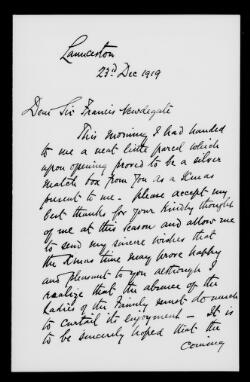 Launceston
23rd Dec 1919
Dear Sir Francis Newdegate
This morning I had handed
to me a neat little parcel which
upon opening proved to be a silver
match box from you as a Xmas
present to me - please accept my
best thanks for your kindly thought
of me at this season and allow me
to send my sincere wishes that
the Xmas time may prove happy
and pleasant to you although I
realize that the absence of the
Ladies of the Family must do much
to curtail its enjoyment - It is
to be sincerely hoped that the
coming